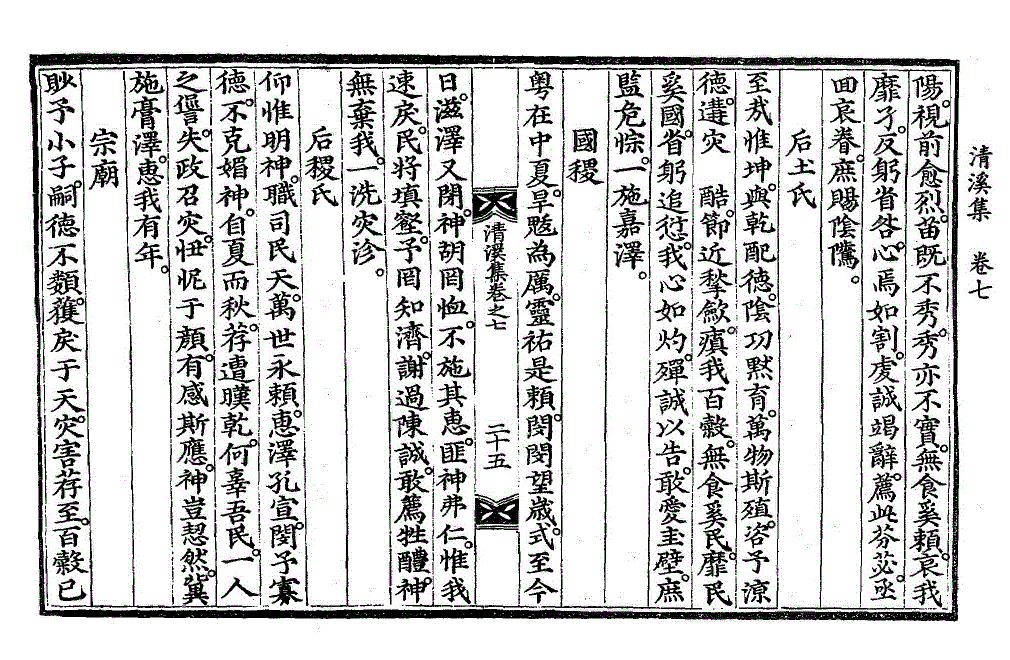 清溪集 卷七
陽。視前愈烈。苗既不秀。秀亦不實。無食奚賴。哀我
靡孑。反躬省咎。心焉如割。虔誠竭辭。薦此芬苾。亟
回哀眷。庶賜陰騭。
后土氏
至哉惟坤。與乾配德。陰功默育。萬物斯殖。咨予涼
德。遘灾 酷。節近揫斂。瘨我百穀。無食奚民。靡民
奚國。省躬追愆。我心如灼。殫誠以告。敢愛圭璧。庶
監危悰。一施嘉澤。
國稷
粤在中夏。旱魃為厲。靈祐是賴。閔閔望歲。式至今
清溪集卷之七 二十五
日。滋澤又閉。神胡罔恤。不施其惠。匪神弗仁。惟我
速戾。民將填壑。予罔知濟。謝過陳誠。敢薦牲醴。神
無棄我。一洗灾沴。
后稷氏
仰惟明神。職司民天。萬世永賴。惠澤孔宣。閔予寡
德。不克媚神。自夏而秋。荐遭暵乾。何辜吾民。一人
之諐。失政召灾。忸怩于顏。有感斯應。神豈恝然。冀
施膏澤。惠我有年。
宗廟
眇予小子。嗣德不纇。獲戾于天。灾害荐至。百穀已